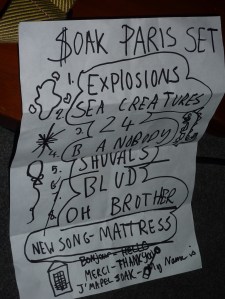 $OAK PARIS SET
1. EXPLOSIONS
2. SEA CREATURES
3. 24
4. B A NOBODY
5. SHUVALS
6. BLUD
7. OH BROTHER
8. NEW SONG - MATTRESS
BONJOUR - HELLO
MERCI - THANKYOU
J'MAPEL SOAK - My Name is